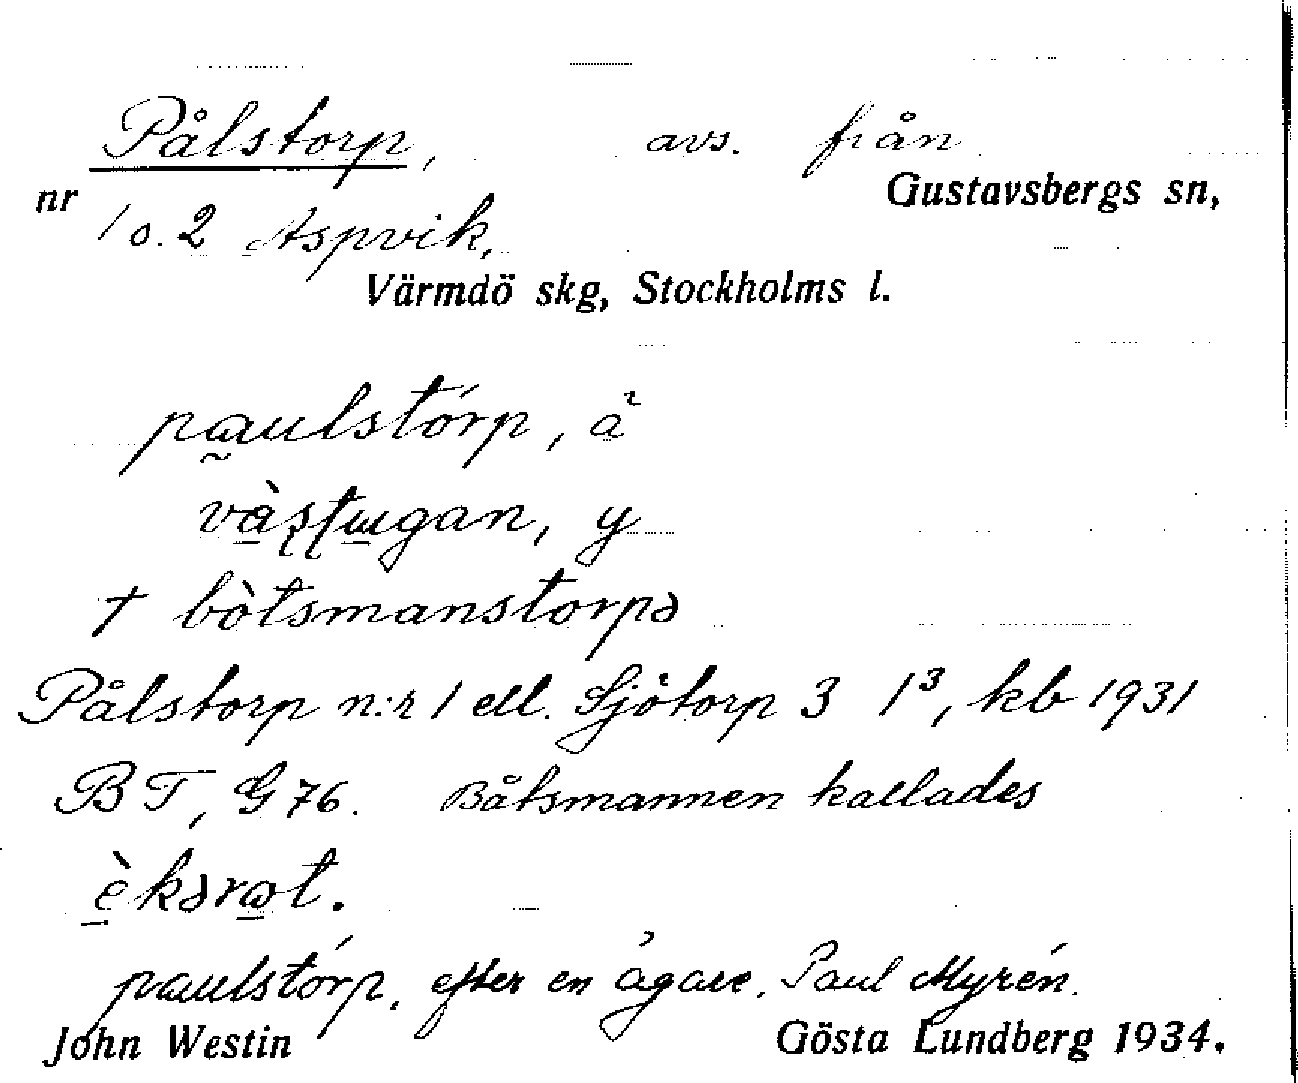 Pålstorp, avs. från
nr Gustavsbergs sn,
1 o. 2 Aspvik,
Värmdö skg, Stockholms l.
paulstórp, å
vàstugan, y
† bòtsmanstorpə
Pålstorp n:r 1 ell. Sjötorp 3 1³, kb 1931
BT, G 76. Båtsmannen kallades
èkərot.
paulstórp, efter en ägare, Paul Myrén.
John Westin Gösta Lundberg 1934.